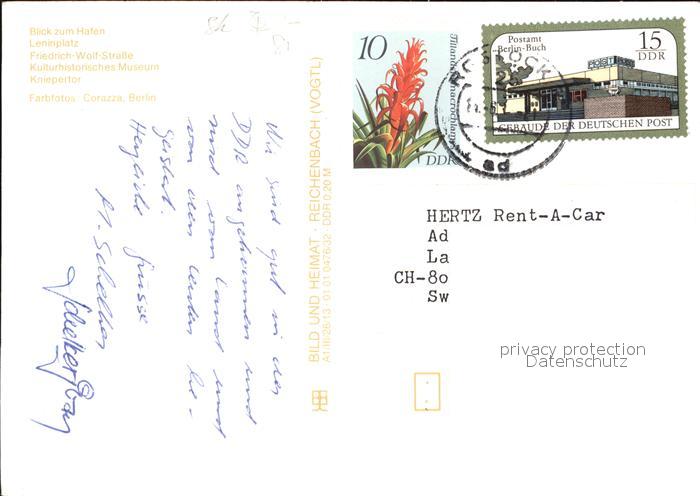 Blick zum Hafen
Leninplatz
Friedrich-Wolf-Straße
Kulturhistorisches Museum
Kniepertor
Farbfotos Corazza, Berlin
Wir sind gut in der
DDR angekommen und
sind von Land und
von den Leuten be-
geistert.
Herzliche Grüsse
BILD UND HEIMAT · REICHENBACH (VOGTL)
A1/III/26/13 · 01 01 0476/32 · DDR 0.20 M
10
DDR
Postamt
Berlin-Buch
15
DDR
POST
GEBÄUDE DER DEUTSCHEN POST
ROSTOCK
HERTZ Rent-A-Car
Ad
La
CH-80
Sw
privacy protection
Datenschutz